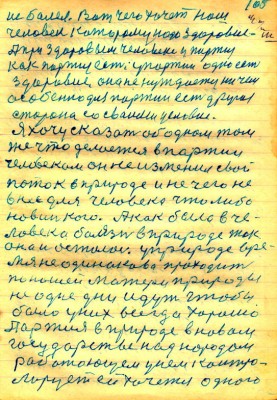 105
не болел Вот чего хочет наш
человек которому надо здоровие-
А при здоровии человека и партия
как партия есть. у партии одно есть
здоровия, она не нуждается ни чем
особенно для партии есть другая
сторона со своими целями.
Я хочу сказать об одном том
же что делается в партии
человеком он не изменил свой
поток в природе и не чего не
внес для человека что либо
нового. А как было в че-
ловека болезн в природе так
она и осталос. у природе вре-
мя не одинакова проходит
по нашей матери природы
не одне дни идут чтобы
было у них всегда хорошо
Партия в природе в новом
государстве над народом
работающем у нем контро-
лирует ей хочется одного